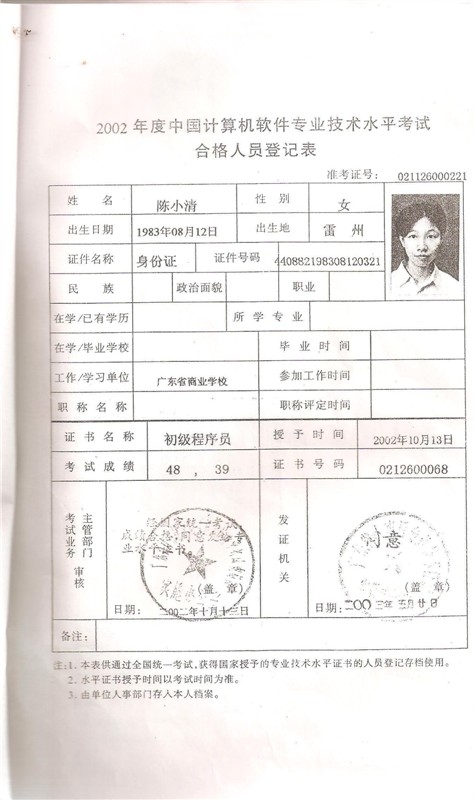 2002 年度中国计算机软件专业技术水平考试
合格人员登记表
准考证号: 021126000221
姓 名 陈小清 性 别 女
出生日期 1983年08月12日 出生地 雷 州
证件名称 身份证 证件号码 440882198308120321
民 族 政治面貌 职业
在学/已有学历 所 学 专 业
在学/毕业学校 毕 业 时 间
工作/学习单位 广东省商业学校 参加工作时间
职称名称 职称评定时间
证书名称 初级程序员 授 予 时 间 2002年10月13日
考试成绩 48 , 39 证 书 号 码 0212600068
考试业务主管部门审核
经 国家统一考试
成绩合格,同意发给专
业水平证书。
(盖 章)
日期: 二00二年十月十三日
发证机关
同意
(盖 章)
日期:
备注:
注:1. 本表供通过全国统一考试,获得国家授予的专业技术水平证书的人员登记存档使用。
2. 水平证书授予时间以考试时间为准。
3. 由单位人事部门存入本人档案。